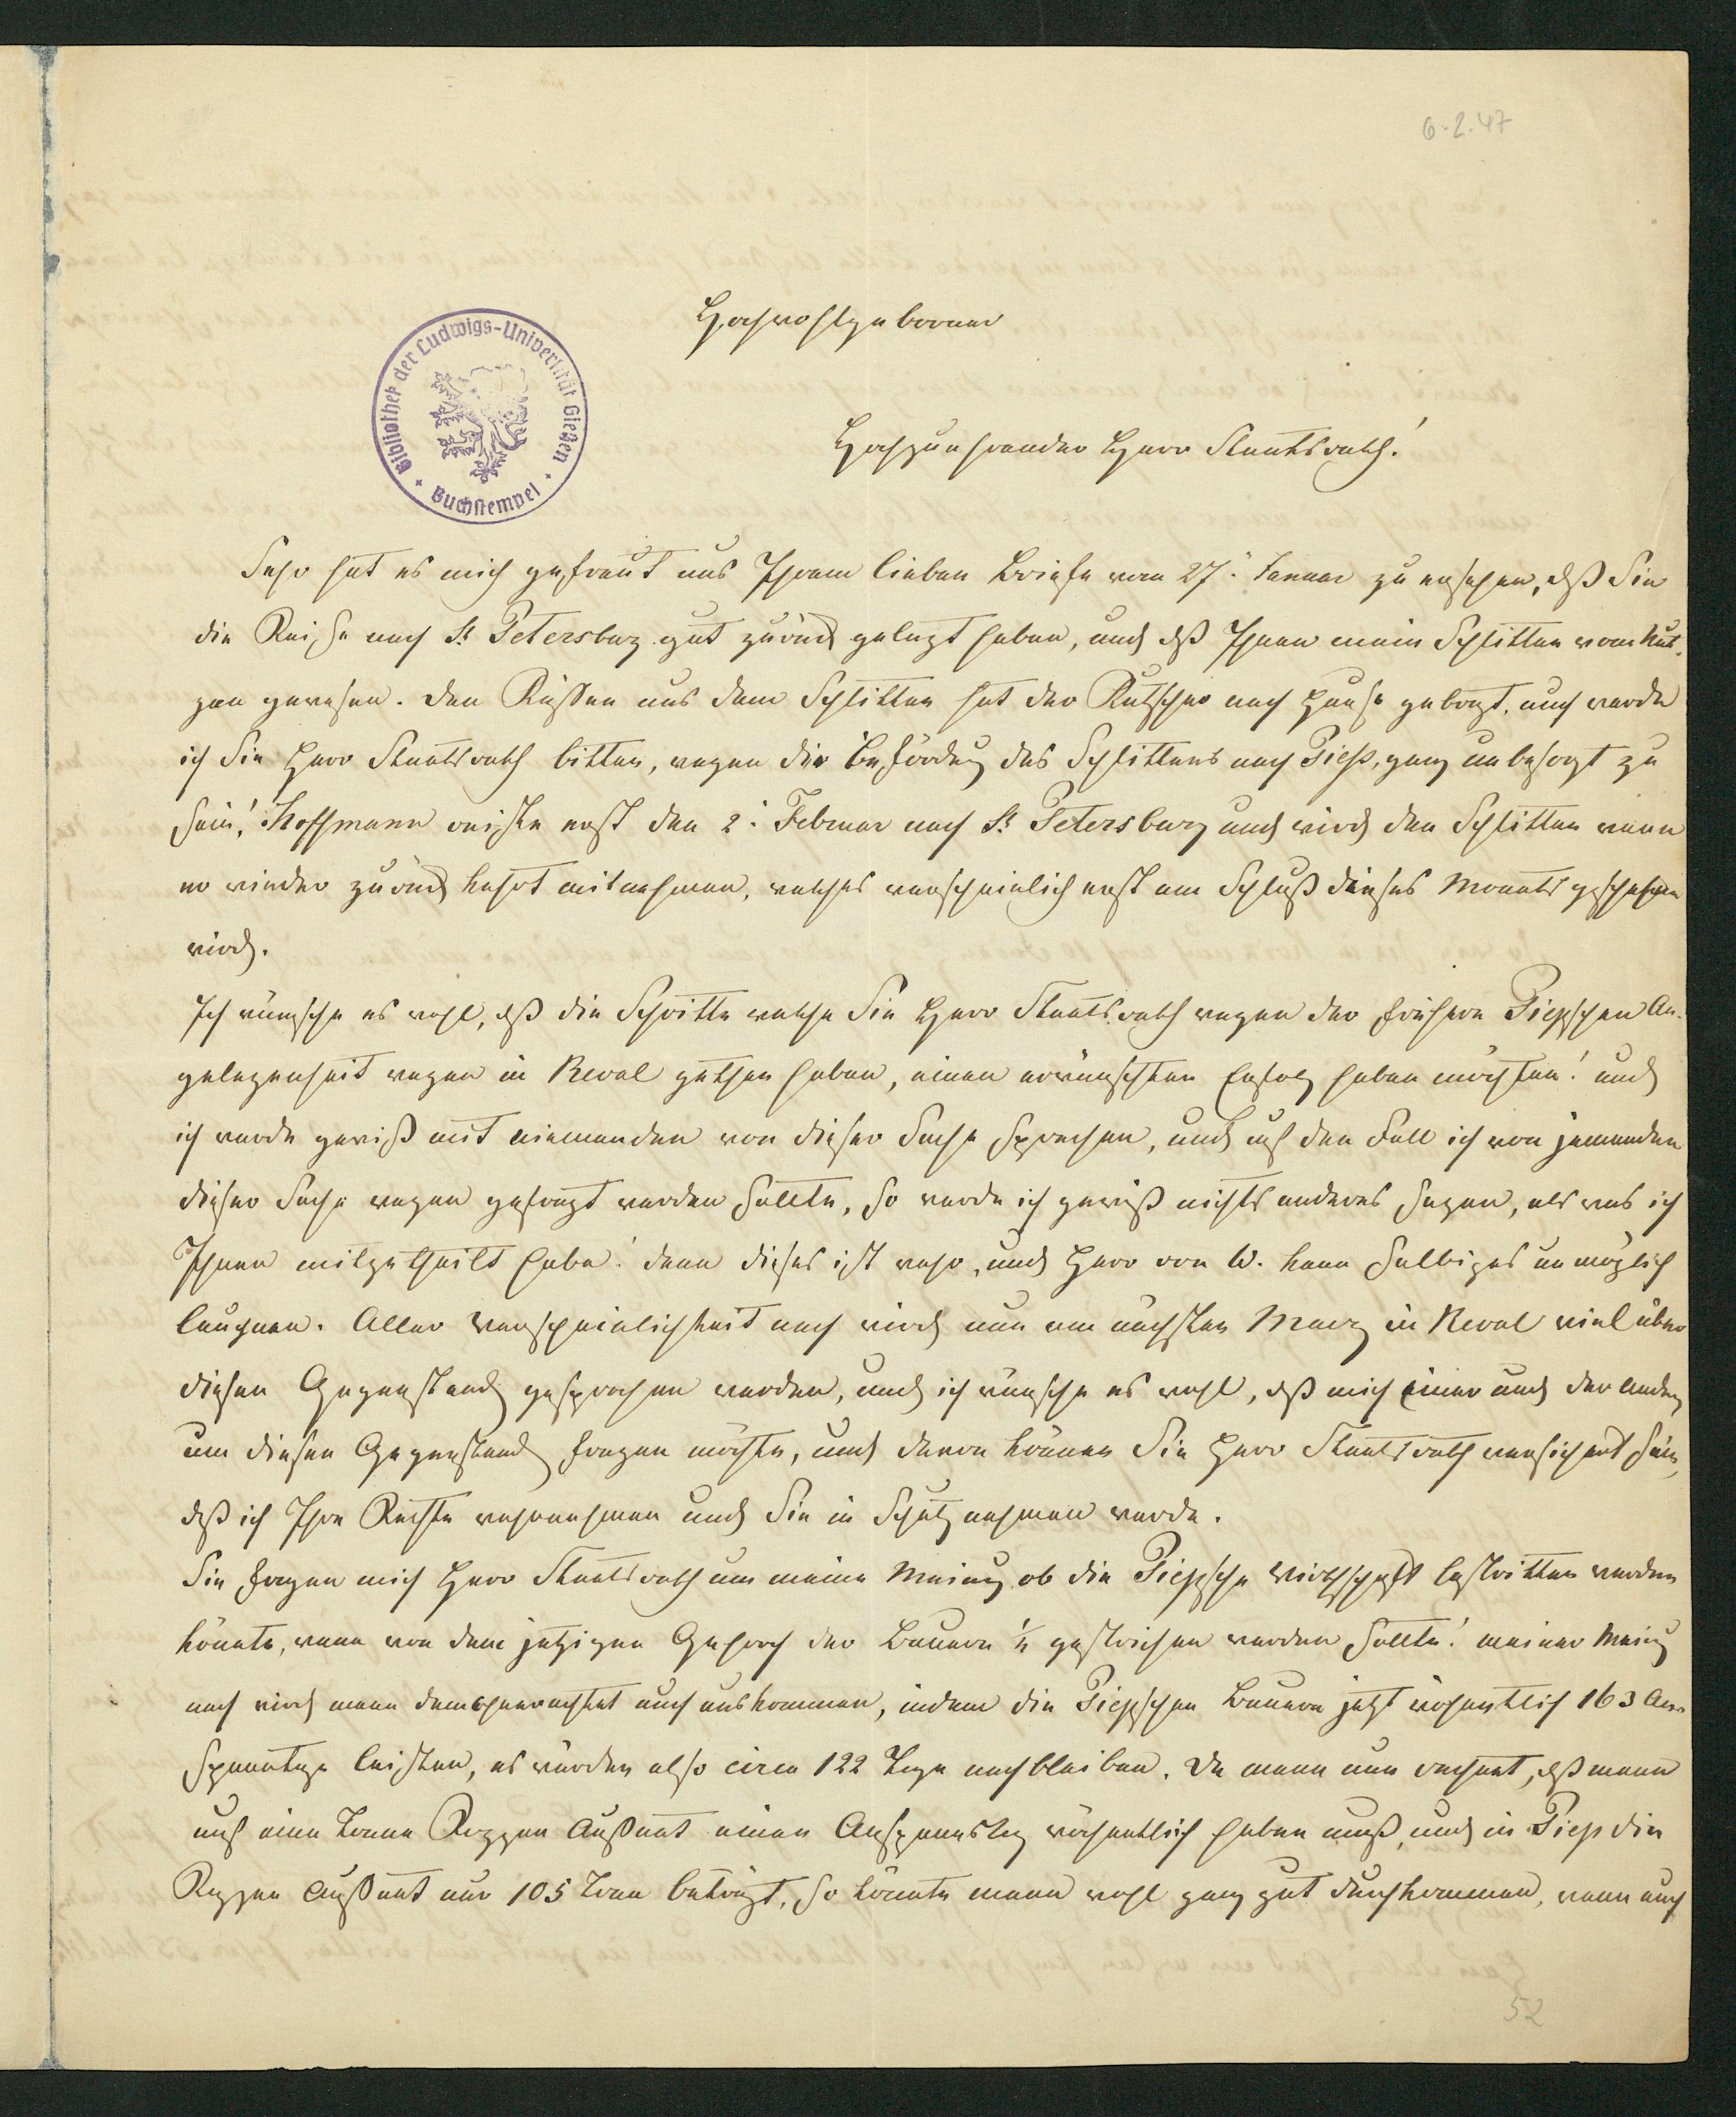 6.2.47
Hochwohlgeborner
Bibliothek der Ludwigs-Universität Gießen
Buchstempel
Hochzuehrender Herr Staatsrath!
Sehr hat es mich gefreut aus Ihrem lieben Briefe vom 27ᵗ Januar zu ersehen, dß Sie
die Reise nach St Petersburg gut zurück gelegt haben, und dß Ihnen mein Schlitten vom Nut-
zen gewesen. Den Küssen aus dem Schlitten hat der Kutscher nach Hause gebragt, auch werde
ich Sie Herr Staatsrath bitten, wegen die Beförderg des Schlittens nach Piep, ganz unbesorgt zu
sein! Hoffmann reiste erst den 2ᵗ Februar nach St Petersburg und wird den Schlitten wenn
er wieder zurück kehrt mitnehmen, welches warscheinlich erst am Schluß dieses Monats geschehen
wird.
Ich wünsche es wohl, dß die Schritte welche Sie Herr Staatsrath wegen der frühern Piepschen An-
gelegenheit wegen in Reval gethan haben, einen erwünschten Erfolg haben möchten! und
ich werde gewiß mit niemanden von dieser Sache sprechen, und auf den Fall ich von jemanden
dieser Sache wegen gefragt werden sollte, so werde ich gewiß nichts anderes sagen, als was ich
Ihnen mitgetheilt habe! denn dieses ist wahr, und Herr von W. kann selbiges unmöglich
leugnen. Aller Warscheinlichkeit nach wird nun am nächsten Maerz in Reval viel über
diesen Gegenstand gesprochen werden, und ich wünsche es wohl, dß mich einer und der andere
um diesen Gegenstand fragen möchte, und davon können Sie Herr Staatsrath versichert sein,
dß ich Ihre Rechte wahrnehmen und Sie in Schutz nehmen werde.
Sie fragen mich Herr Staatsrath um meine Meinug ob die Piepsche Wirthschaft bestritten werden
könnte, wenn von dem jetzigen Gehorch der Bauern ¼ gestrichen werden sollte! meiner Meinug
nach wird mann demohnerachtet auch auskommen, indem die Piepschen Bauern jetzt wöchentlich 163 An-
spanntage leisten, es würden also circa 122 Tage nachbleiben. Da mann nun rechnet, dß mann
auf eine Tonne Roggen Aussaat einen Anspannstag wöchentlich haben muß, und in Piep die
Roggen Aussaat nur 105 Ton beträgt, so könnte mann wohl ganz gut durchkommen, wenn auch
52